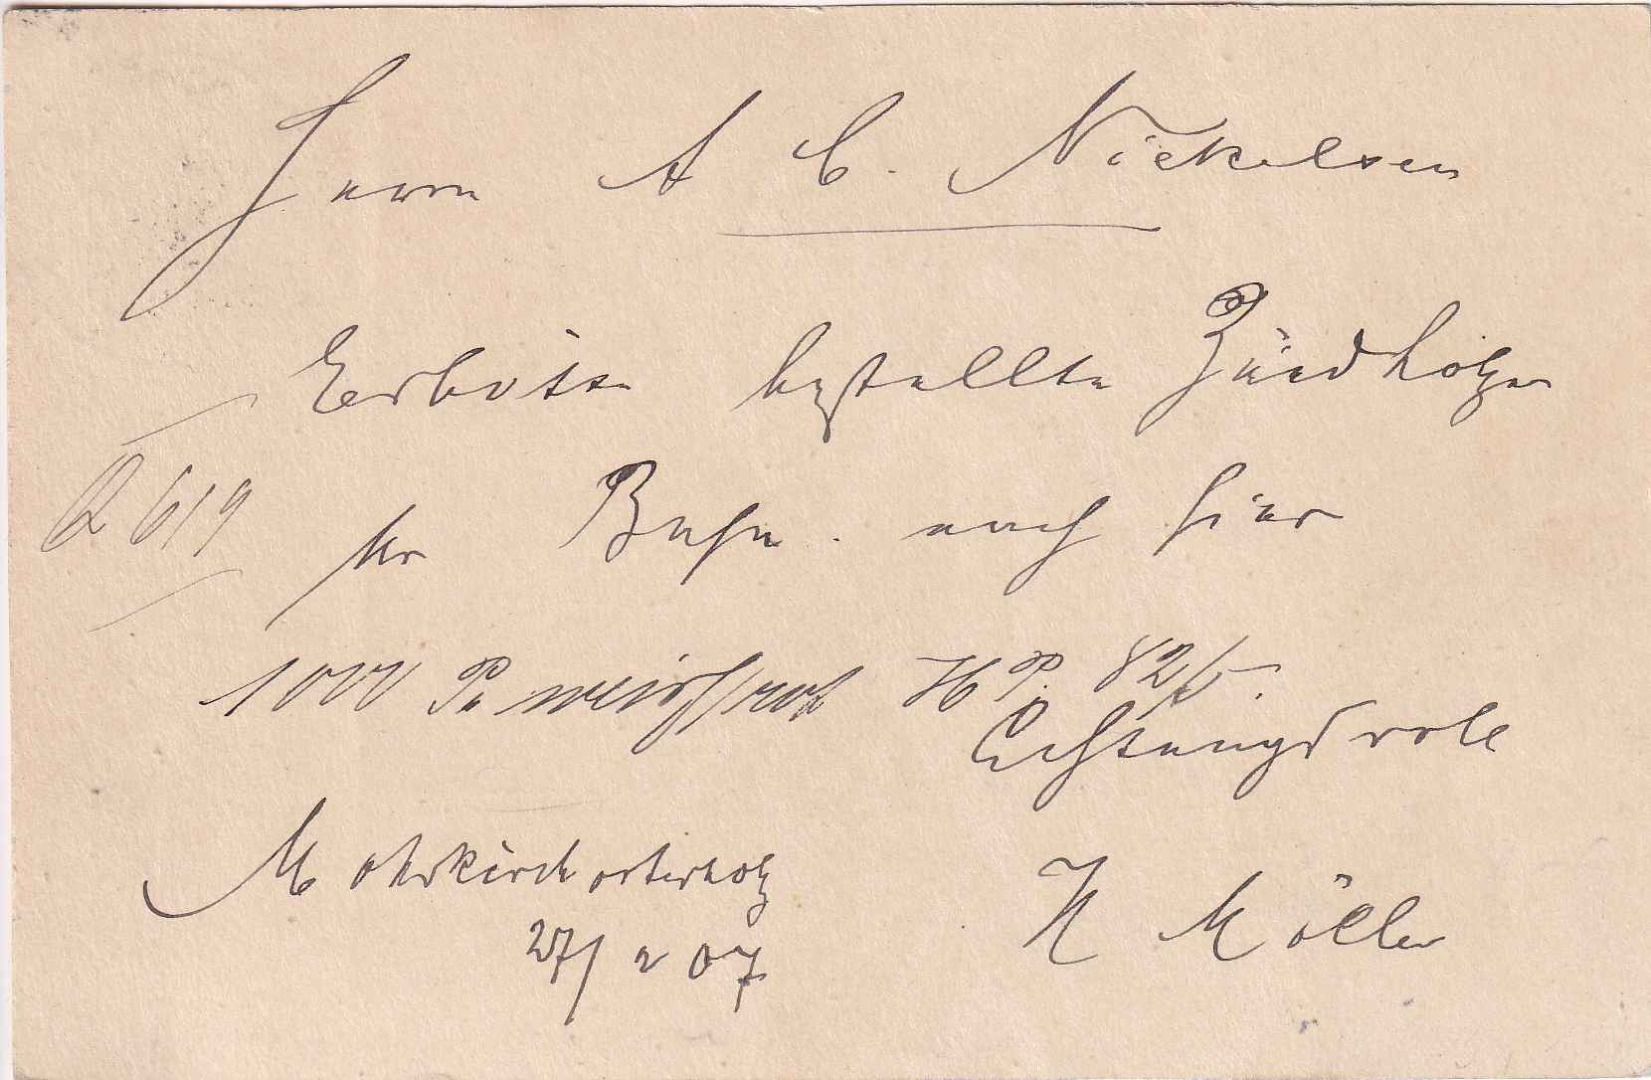 Herrn A C. Nickelsen
Erbitte bestellte Zündhölzer
Q 619
per Bahn nach hier
1000 P. weiss/rot HP. 82/5.
Achtungsvoll
Mohrkirch osterholz
27/2 07
H Möller